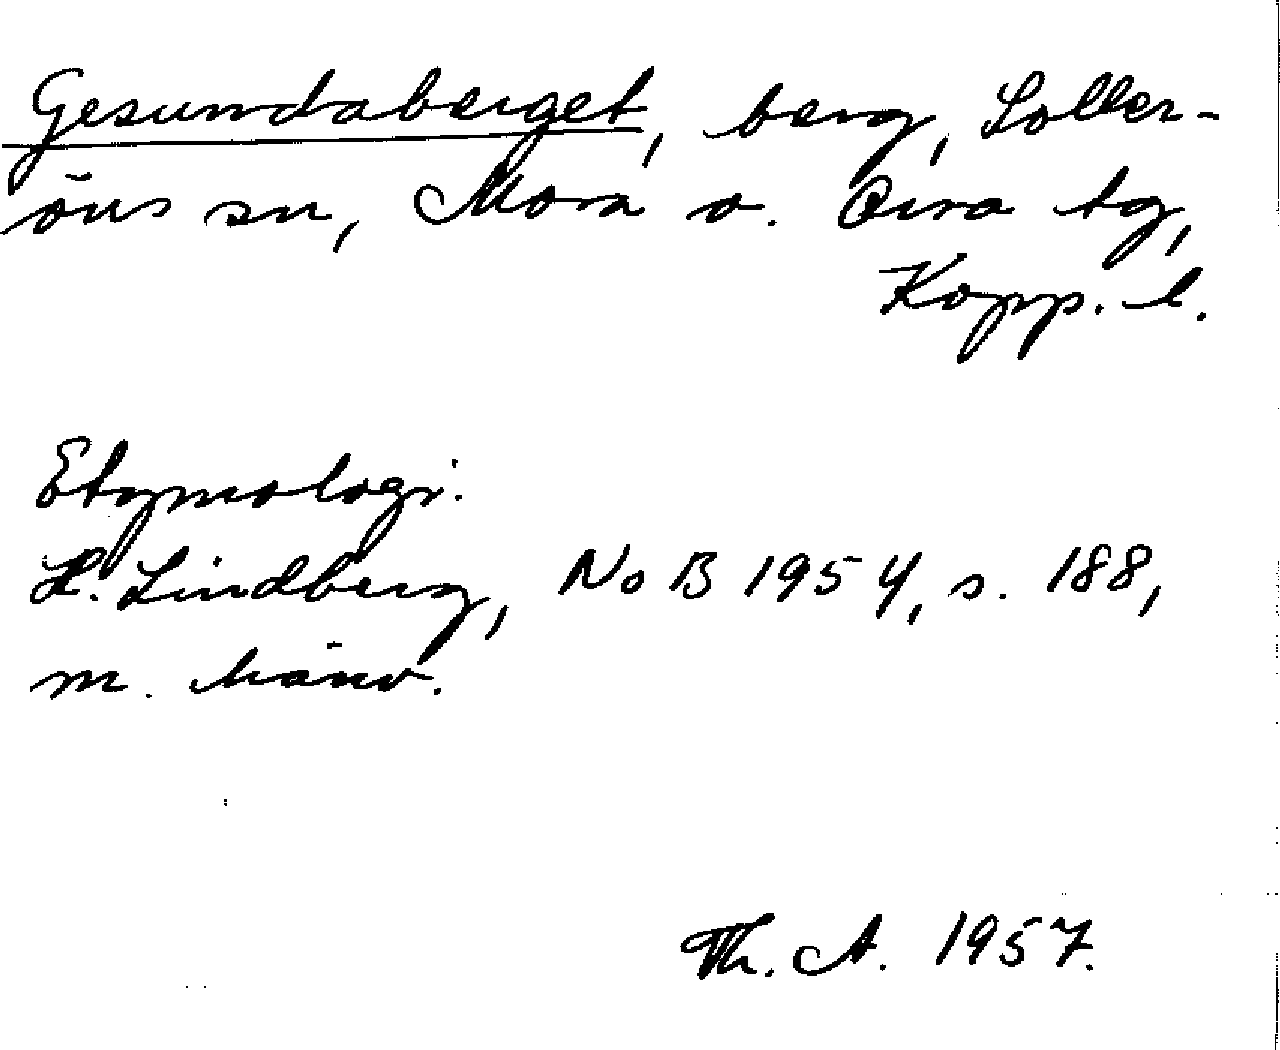 Gesundaberget, berg, Soller-
öns sn, Mora o. Orsa tg,
Kopp. l.
Etymologi.
K. Lindberg, NoB 1954, s. 188,
m. hänv.
Th. A. 1957.